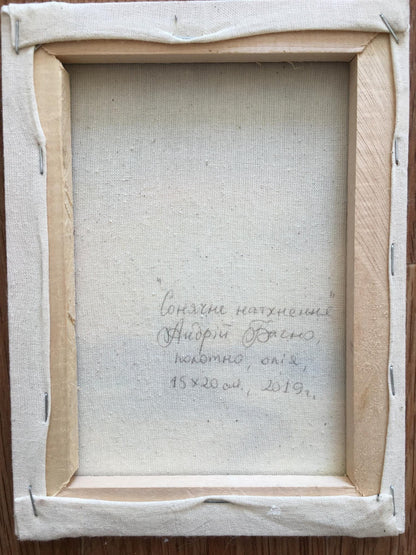 "Сонячне натхнення"
Андрій Багно,
полотно, олія,
15×20 см, 2019 г.